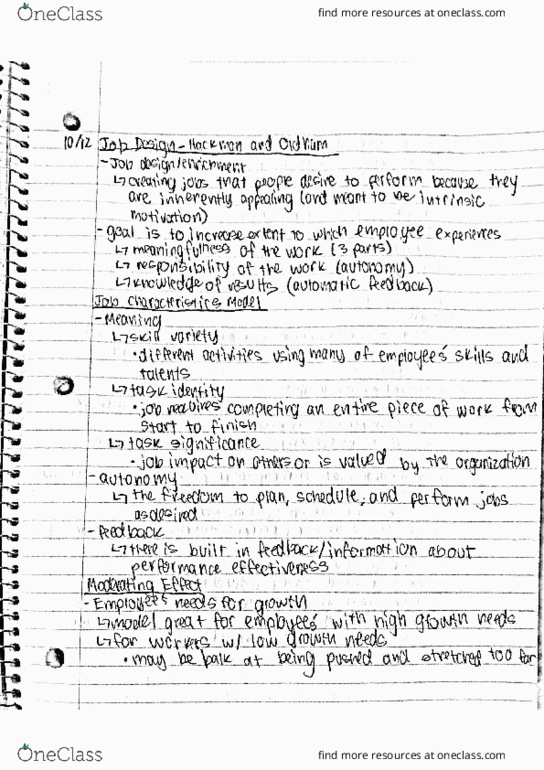 OneClass
find more resources at oneclass.com
10/12 Job Design - Hackman and Oldham
- Job design/enrichment
↳ creating jobs that people desire to perform because they
are inherently appealing (and meant to be intrinsic
motivation)
- goal is to increase extent to which employee experiences
↳ meaningfulness of the work (3 parts)
↳ responsibility of the work (autonomy)
↳ knowledge of results (automatic feedback)
Job Characteristics Model
- Meaning
↳ skill variety
• different activities using many of employee's skills and
talents
↳ task identity
• job requires completing an entire piece of work from
start to finish
↳ task significance
• job impact on others or is valued by the organization
- autonomy
↳ the freedom to plan, schedule, and perform jobs
as desired
- feedback
↳ there is built in feedback/information about
performance effectiveness
Moderating Effect
- Employee's needs for growth
↳ model great for employees with high growth needs
↳ for workers w/ low growth needs
• may be balk at being pushed and stretched too far
OneClass
find more resources at oneclass.com